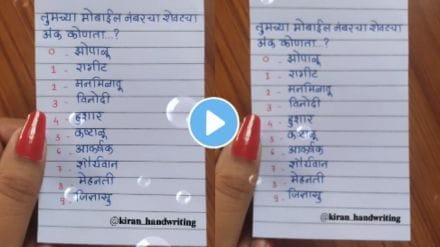 तुमच्या मोबाईल नंबरचा शेवटचा
अंक कोणता..?
0 - झोपाळू
1 - रागीट
2 - मनमिळावू
3 - विनोदी
4 - हुशार
5 - कष्टाळू
6 - आकर्षक
7 - शौर्यवान
8 - मेहनती
9 - जिज्ञासु
@kiran_handwriting
तुमच्या मोबाईल नंबरचा शेवटचा
अंक कोणता..?
0 - झोपाळू
1 - रागीट
2 - मनमिळावू
3 - विनोदी
4 - हुशार
5 - कष्टाळू
6 - आकर्षक
7 - शौर्यवान
8 - मेहनती
9 - जिज्ञासु
@kiran_handwriting